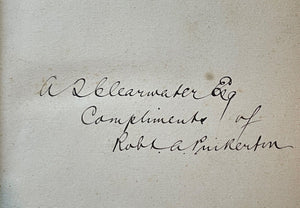 A T Clearwater Esq
Compliments of
Robt. A. Pinkerton